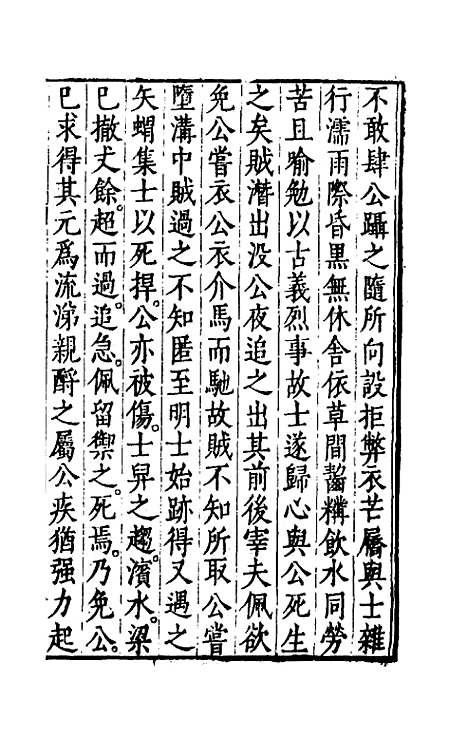 不敢肆公躡之隨所向設拒弊衣芒屩與士雜
行濡雨際昏黒無休舍依草間齧糗飲水同勞
苦且喻勉以古義烈事故士遂歸心與公死生
之矣賊潛出没公夜追之出其前後宰夫佩欲
免公嘗衣公衣介馬而馳故賊不知所取公嘗
墮溝中賊過之不知匿至明士始跡得又遇之
矢蝟集士以死捍。公亦被傷。士舁之趨。濱水。梁
已撤丈餘。超而過。追急。佩留禦之。死焉。乃免公。
已求得其元爲流涕親酹之屬公疾猶强力起